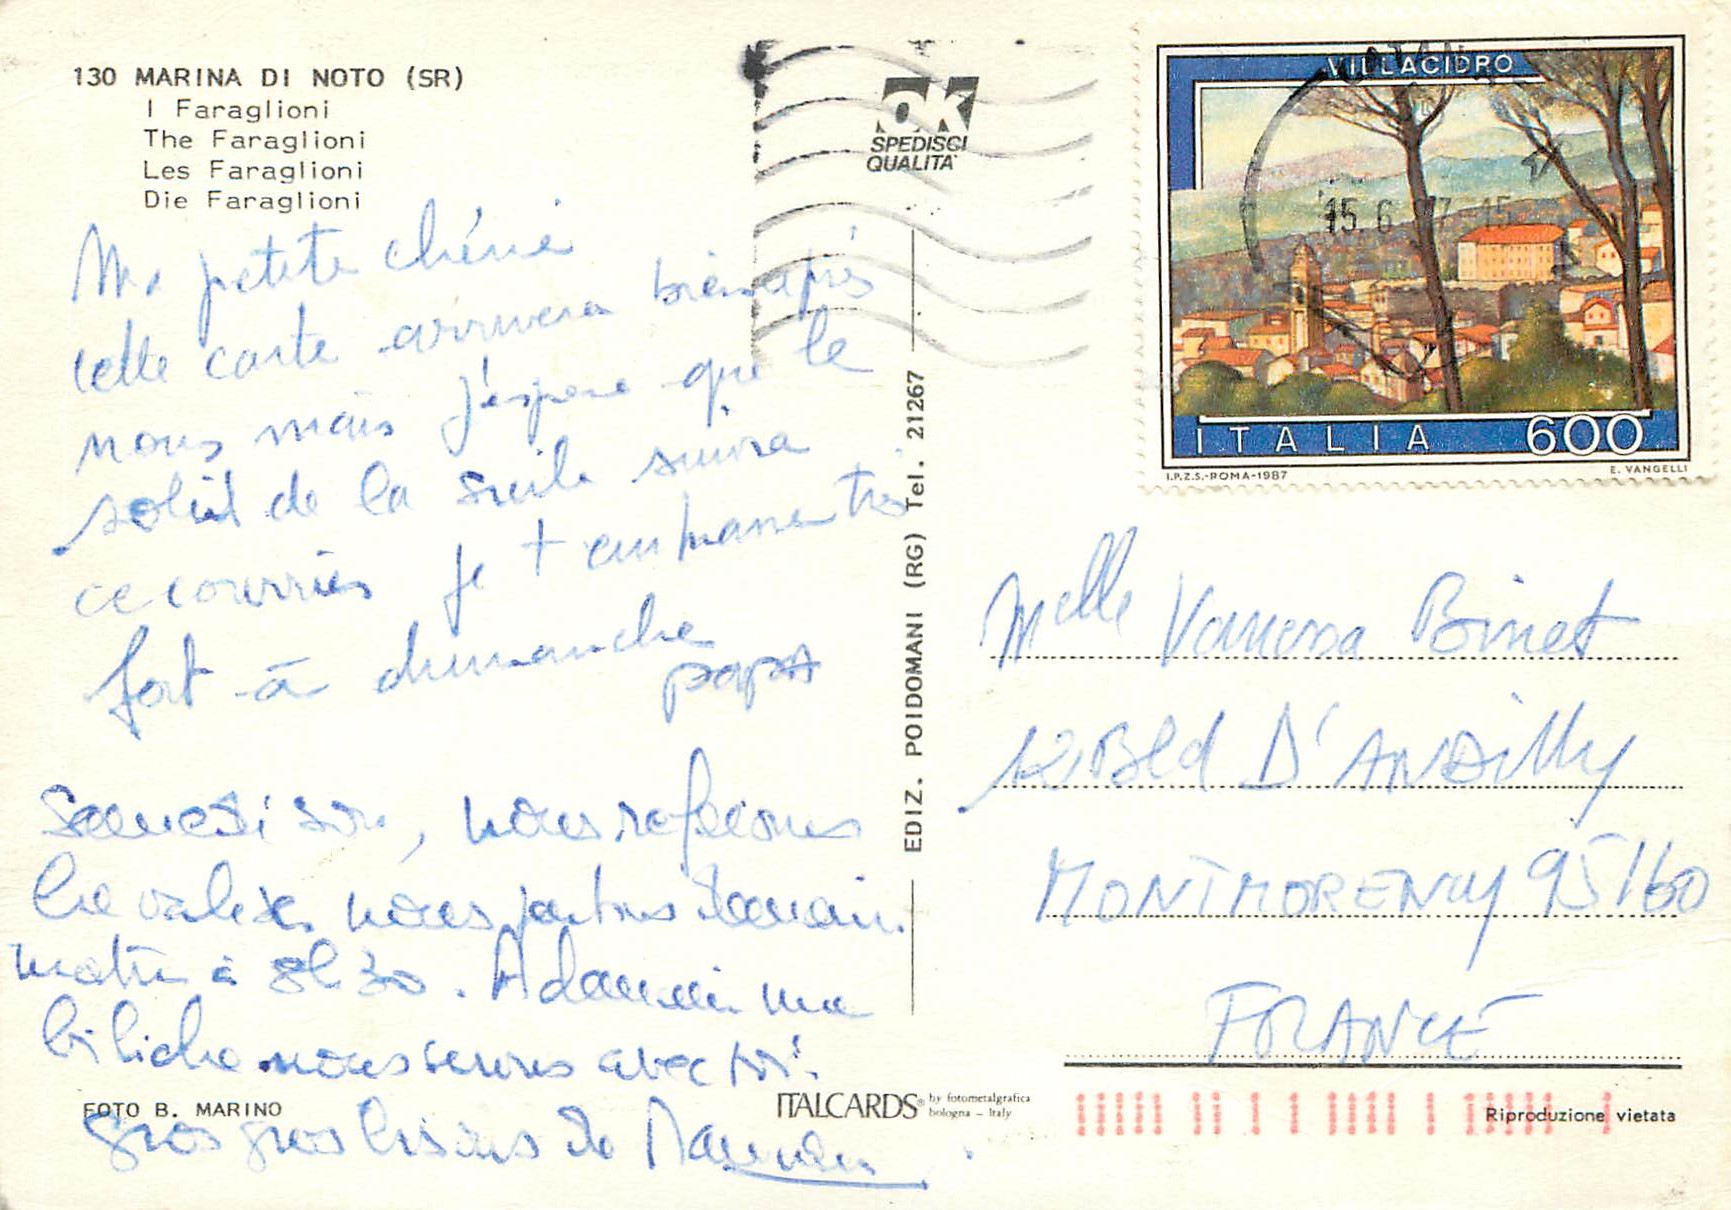 130 MARINA DI NOTO (SR)
I Faraglioni
The Faraglioni
Les Faraglioni
Die Faraglioni
Ma petite chérie
cette carte arrivera bien après
nous mais j'espere que le
soleil de la suite suivra
ce courrier je t'embrasse très
fort à dimanche
papa
Samedi soir, nous refaisons
les valises nous partons demain
matin à 8h30. A demain ma
bibiche nous serons avec toi.
gros gros bisous de Maman
FOTO B. MARINO
EDIZ. POIDOMANI (RG) Tel. 21267
ITALCARDS® by fotometalgrafica
bologna - Italy
OK
SPEDISCI
QUALITA'
VILLACIDRO
15 6 87 15
ITALIA 600
I.P.Z.S.-ROMA-1987
E. VANGELLI
Melle Vanessa Binet
12 Bld D'ANDilly
MONTMORENCY 95160
FRANCE
Riproduzione vietata